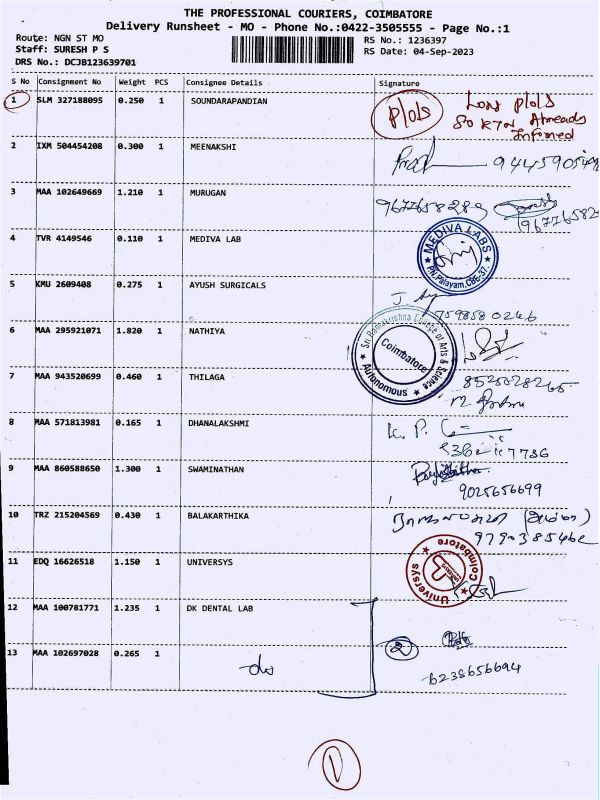 THE PROFESSIONAL COURIERS, COIMBATORE
Delivery Runsheet - MO - Phone No.:0422-3505555 - Page No.:1
Route: NGN ST MO
RS No.: 1236397
Staff: SURESH P S
RS Date: 04-Sep-2023
DRS No.: DCJB123639701
S No Consignment No Weight PCS Consignee Details Signature
1 SLM 327188095 0.250 1 SOUNDARAPANDIAN plots
plots
So RTN Already
Informed
2 IXM 504454208 0.300 1 MEENAKSHI
3 MAA 102649669 1.210 1 MURUGAN
9677658289
4 TVR 4149546 0.110 1 MEDIVA LAB
MEDIVA LABS
PN.Palayam, CBE-37.
5 KMU 2609408 0.275 1 AYUSH SURGICALS
7598580246
6 MAA 295921071 1.820 1 NATHIYA
Sri Ramakrishna College of Arts & Science
Coimbatore
Autonomous
7 MAA 943520699 0.460 1 THILAGA
8525028265
8 MAA 571813981 0.165 1 DHANALAKSHMI
K. P.
9 MAA 860588650 1.300 1 SWAMINATHAN
9025656699
10 TRZ 215204569 0.430 1 BALAKARTHIKA
11 EDQ 16626518 1.150 1 UNIVERSYS
Universys Coimbatore
12 MAA 100781771 1.235 1 DK DENTAL LAB
2
13 MAA 102697028 0.265 1 do
6238656694
1